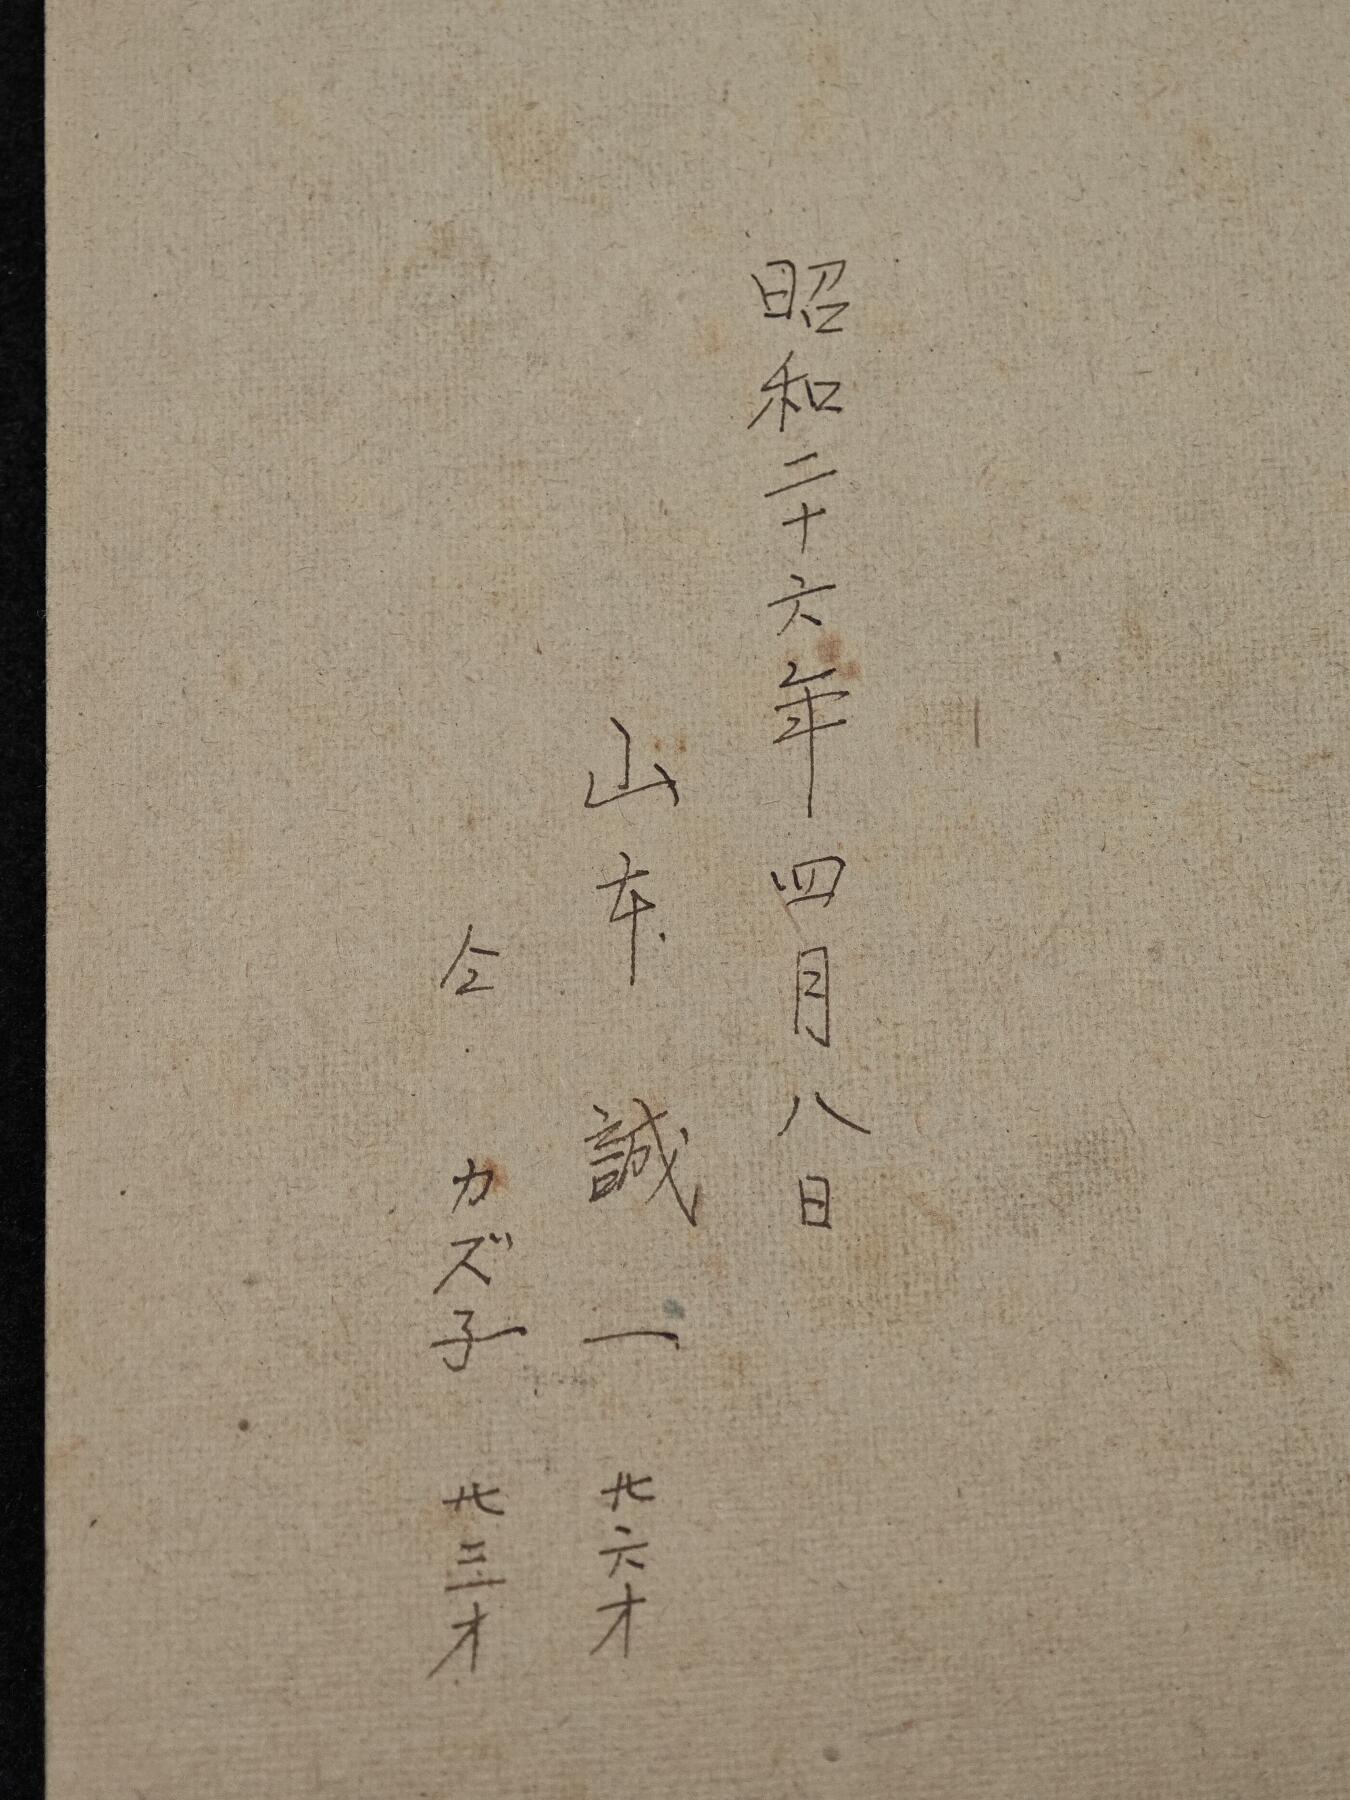 昭和二十六年四月八日
山本 誠一 廿六才
仝 カズ子 廿三才